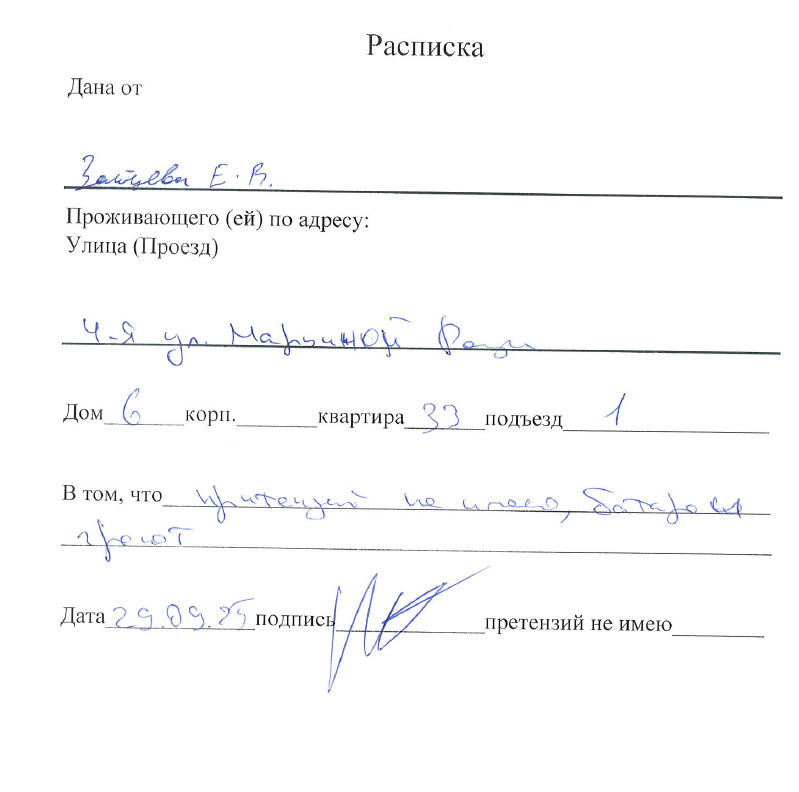 Расписка
Дана от
Зайцева Е. В.
Проживающего (ей) по адресу:
Улица (Проезд)
4-я ул. Марьиной Рощи
Дом 6 корп. квартира 33 подъезд 1
В том, что притензий не имею, батареи
греют
Дата 29.09.25 подпись претензий не имею